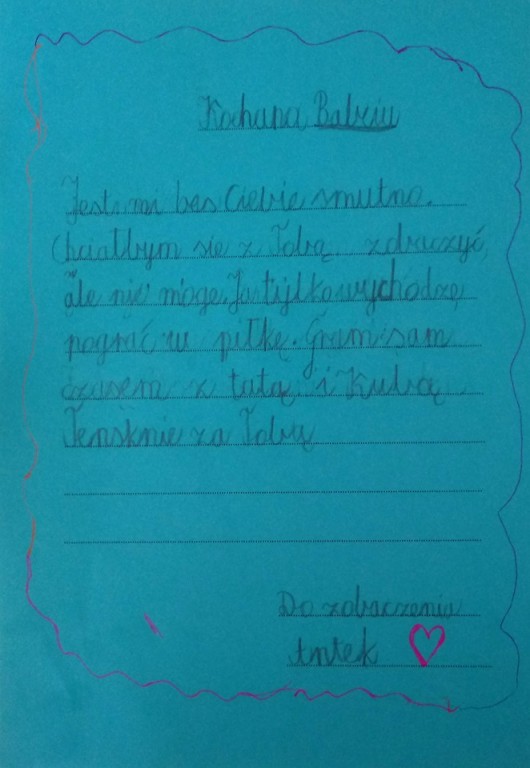 Kochana Babciu
Jest mi bes Ciebie smutno.
Chciałbym sie z Tobą zobaczyć,
ale nie moge. Ja tylko wychodzę
pograć w piłkę. Gram sam
czasem z tatą i Kubą.
Tensknie za Tobą
Do zobaczenia
Antek